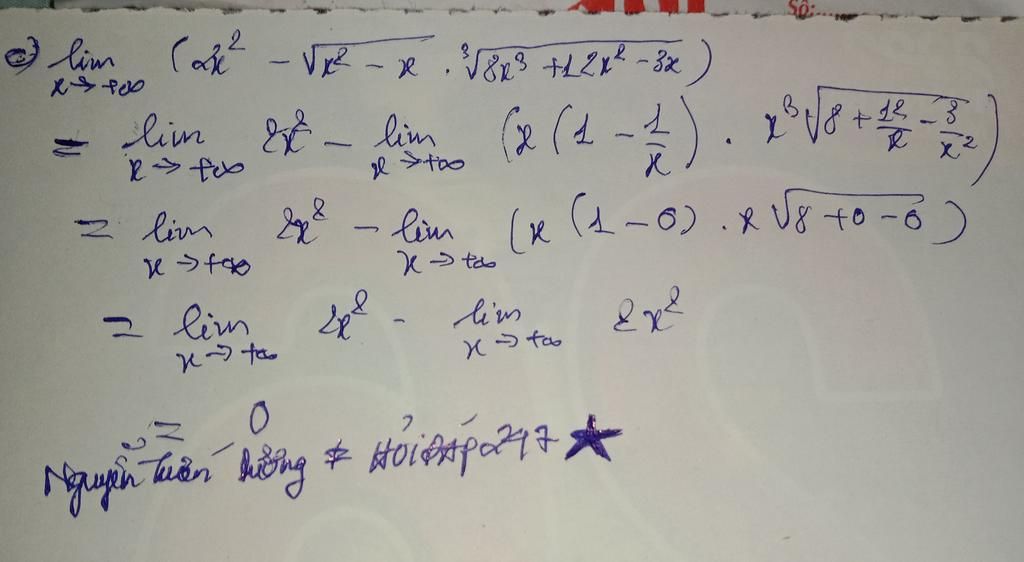 Số:...
c) lim x→+∞ (2x² - √(x² - x) . ³√(8x³ + 12x² - 3x))
= lim x→+∞ 2x² - lim x→+∞ (x(1 - 1/x) . x ³√(8 + 12/x - 3/x²))
= lim x→+∞ 2x² - lim x→+∞ (x(1 - 0) . x√(8 + 0 - 0))
= lim x→+∞ 2x² - lim x→+∞ 2x²
= 0
Nguyễn Tuấn # HỎIĐÁP247 ★